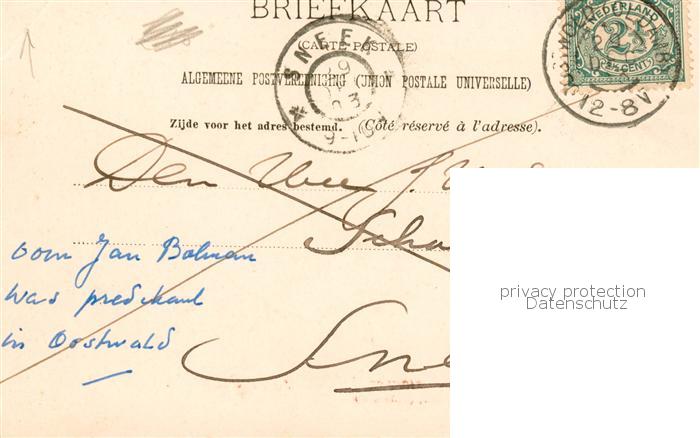 BRIEFKAART
(CARTE POSTALE)
ALGEMEENE POSTVEREENIGING (UNION POSTALE UNIVERSELLE)
Zijde voor het adres bestemd. (Côté réservé à l'adresse).
SNEEK
NEDERLAND
2½
12-8V
Den
oom Jan Bolman
was predikant
in Oostwald
Sne
privacy protection
Datenschutz